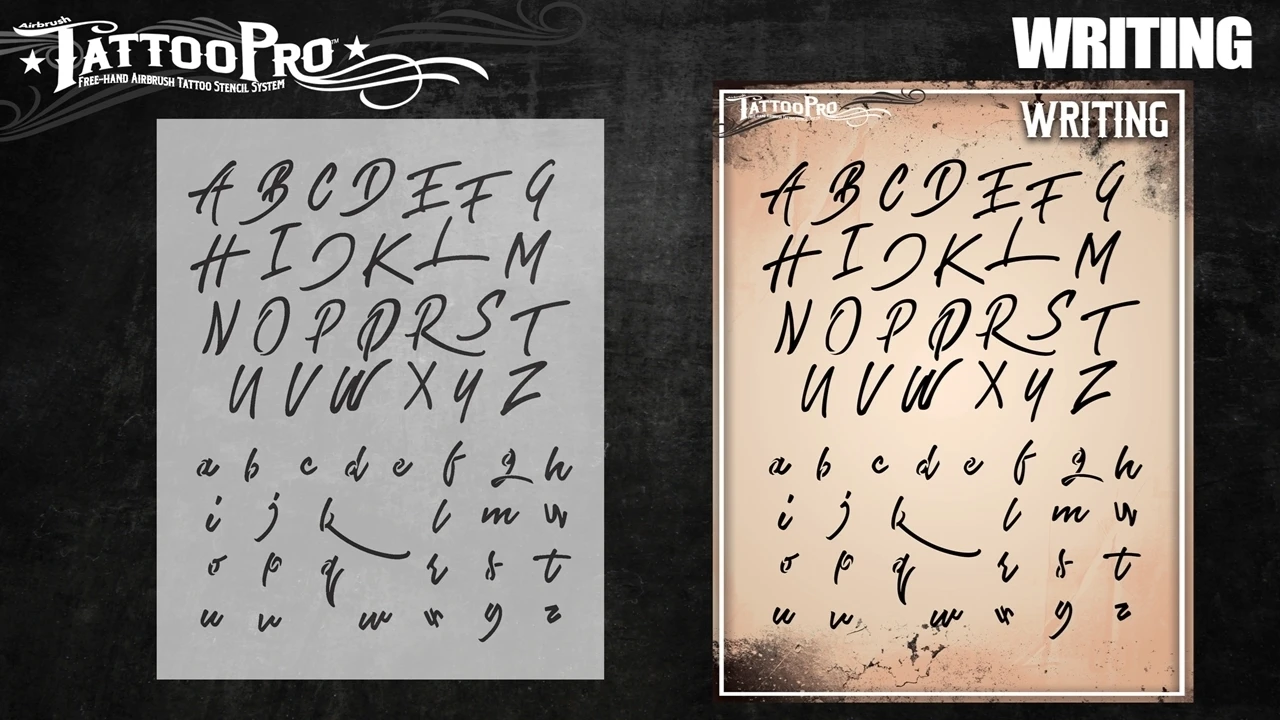 Airbrush
TATTOOPRO™
FREE-HAND AIRBRUSH TATTOO STENCIL SYSTEM
WRITING
A B C D E F G
H I J K L M
N O P Q R S T
U V W X Y Z
a b c d e f g h
i j k l m n
o p q r s t
u v w x y z
TATTOOPRO
WRITING
A B C D E F G
H I J K L M
N O P Q R S T
U V W X Y Z
a b c d e f g h
i j k l m n
o p q r s t
u v w x y z